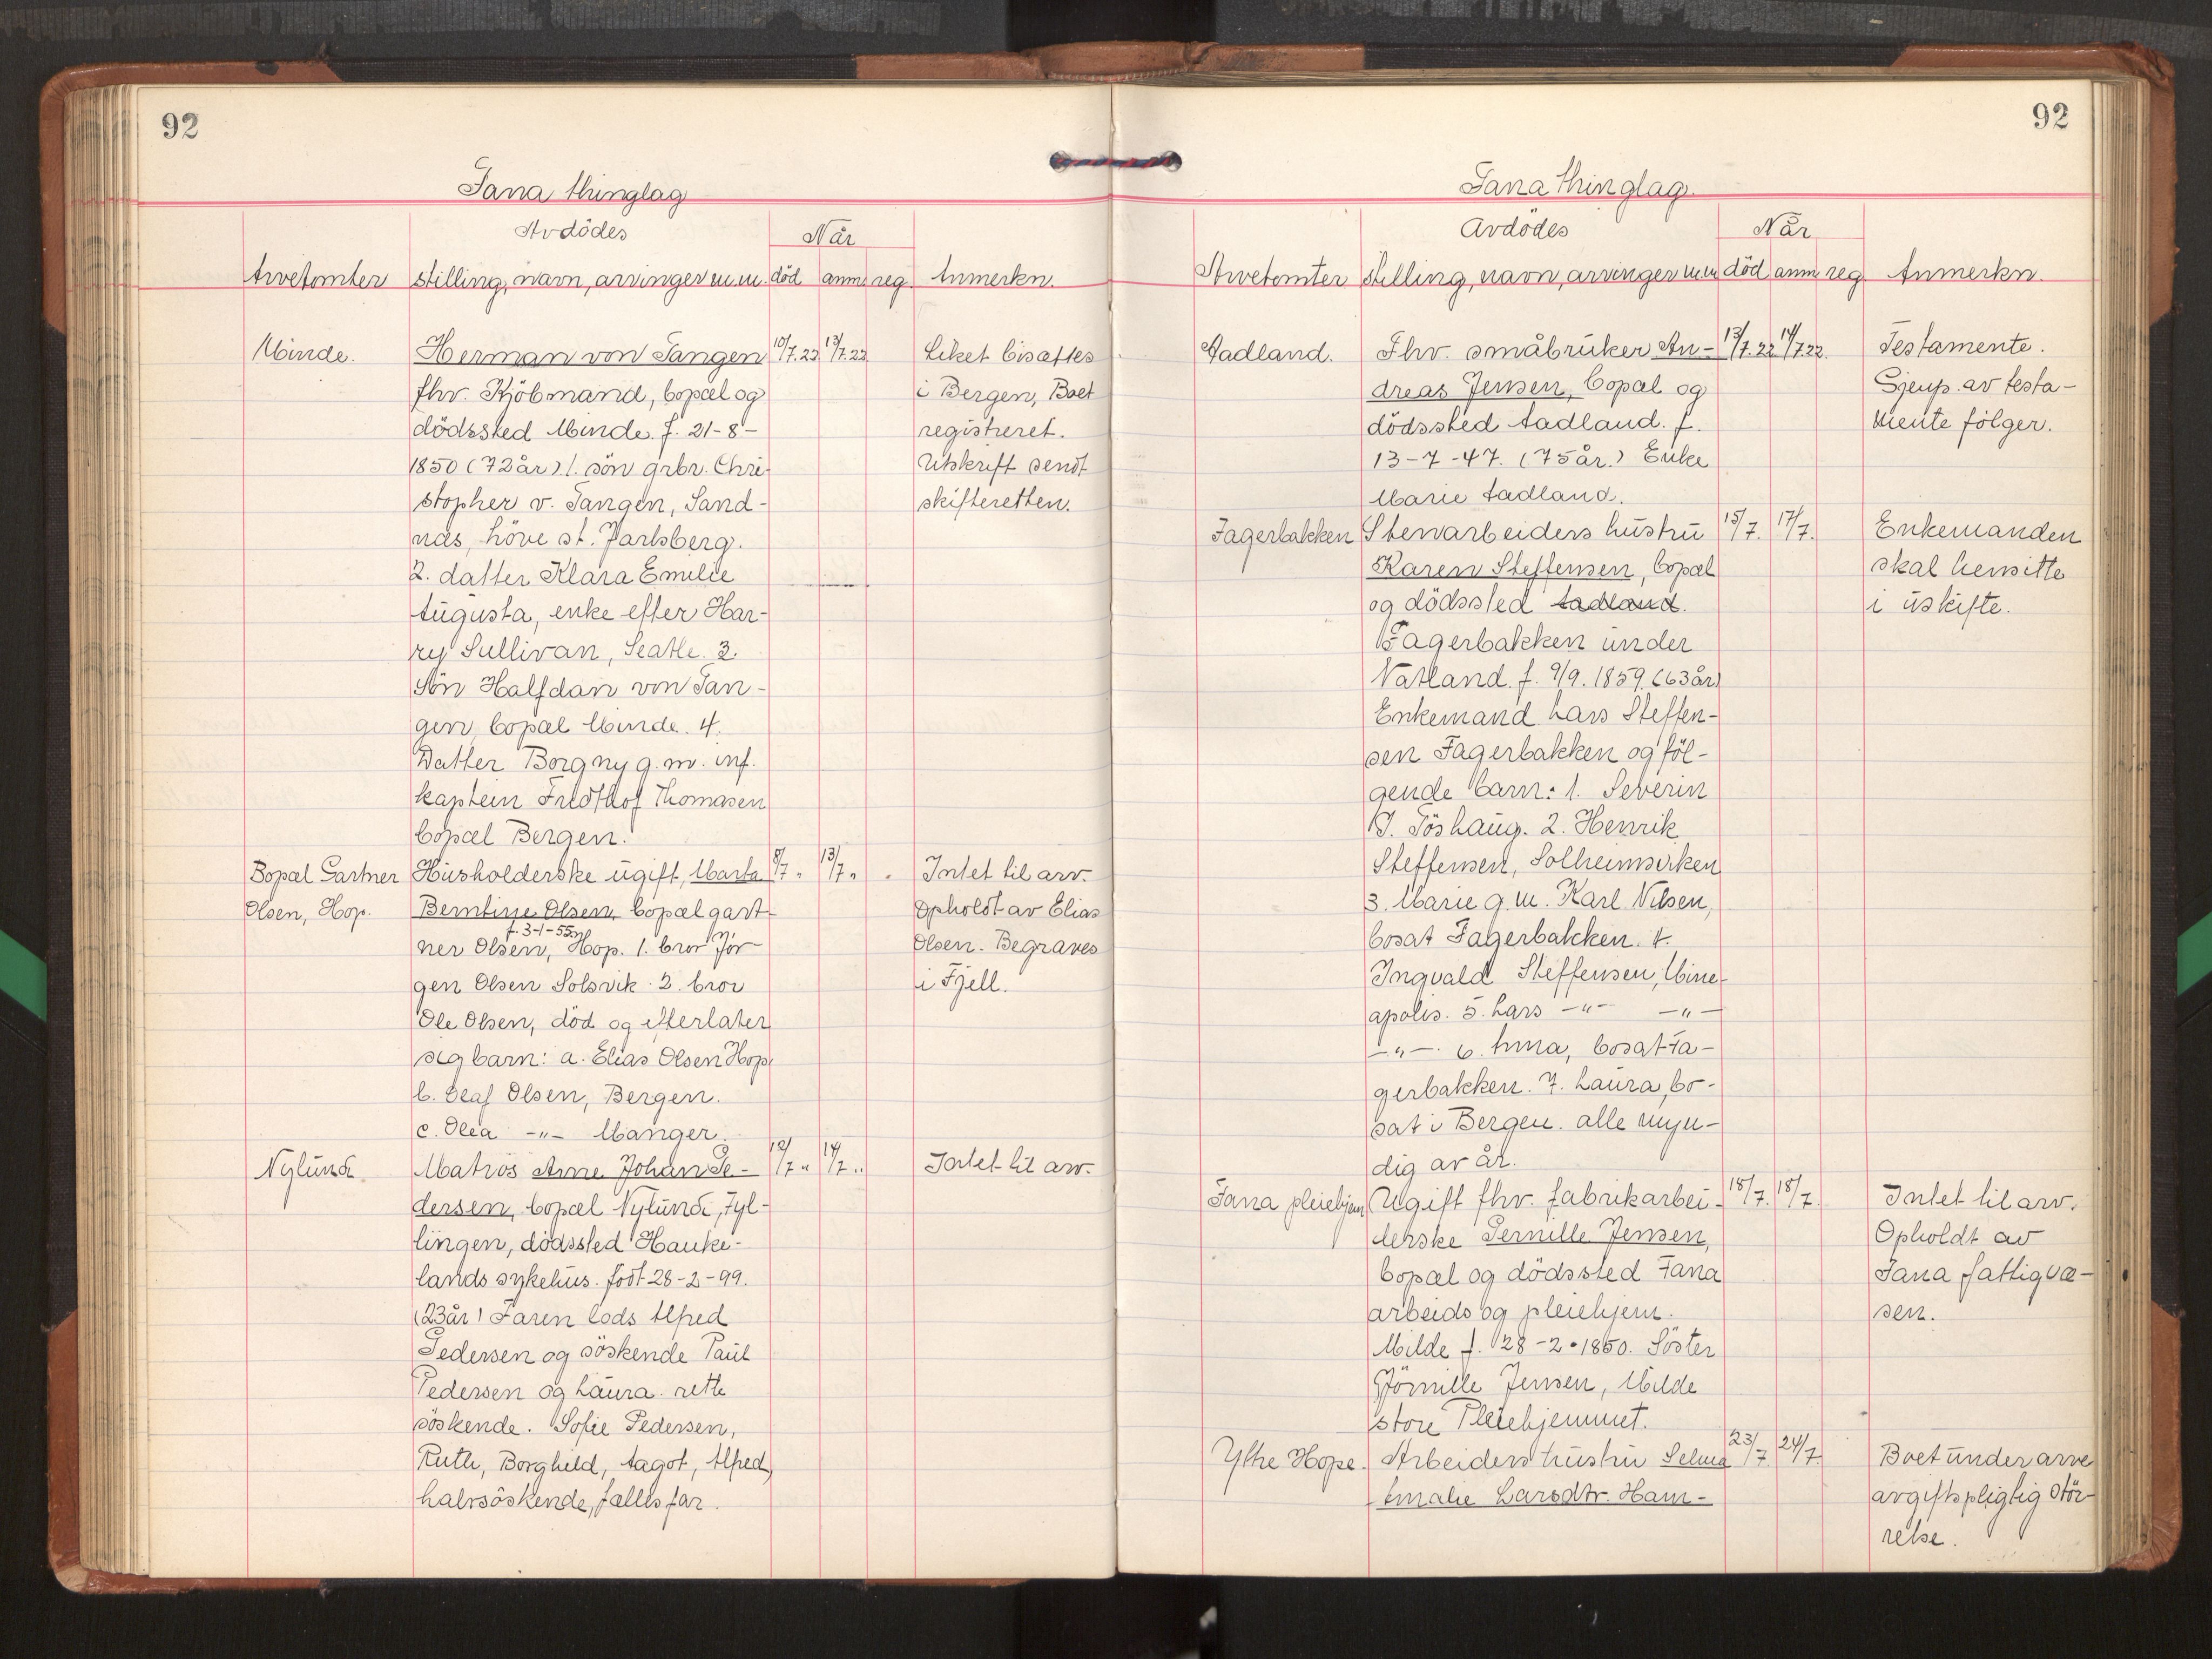 92
Fana thinglag
Avdödes
Når
Arvetomter stilling, navn, arvinger m.m. död anm. reg. Anmerkn.
Minde. Herman von Tangen 10/7.22 13/7.22. Liket bisættes
fhv. Kjöbmand, bopæl og i Bergen, Boet
dödssted Minde. f. 21-8- registreret.
1850 (72 år). 1. sön grbr. Chri- Utskrift sendt
stopher v. Tangen, Sand- skifteretten.
næs, Höve st. Jarlsberg.
2. datter Klara Emilie
Augusta, enke efter Har-
ry Sullivan, Seatle. 3.
Sön Halfdan von Tan-
gen, bopæl Minde. 4.
Datter Borgny g. m. inf.
kaptein Fridthof Thomasen
bopæl Bergen.
Bopæl Gartner Husholderske ugift, Marta 8/7 " 13/7 " Intet til arv.
Olsen, Hop. Berntine Olsen, bopæl gart- Opholdt av Elias
f. 3-1-55
ner Olsen, Hop. 1. bror Jör- Olsen. Begraves
gen Olsen Solsvik. 2. bror i Fjell.
Ole Olsen, död og efterlater
sig barn: a. Elias Olsen Hop,
b. Olaf Olsen, Bergen.
c. Olea -"- Manger.
Nylund Matros Arne Johan Pe- 12/7 " 14/7 " Intet til arv.
dersen, bopæl Nylund, Fyl-
lingen, dödssted Hauke-
lands sykehus. født 28-2-99.
(23 år) Faren lods Alfred
Pedersen og söskende Paul
Pedersen og Laura. rette
söskende. Sofie Pedersen,
Ruth, Borghild, Aagot, Alfred,
halvsöskende, fælles far.
92
Fana thinglag.
Avdödes
Når
Arvetomter stilling, navn, arvinger m.m. död anm. reg. Anmerkn.
Aadland. Fhv. småbruker An- 13/7.22 14/7.22. Testamente.
dreas Jensen, bopæl og Gjenp. av testa-
dödssted Aadland. f. mente fölger.
13-7-47. (75 år.) Enke
Marie Aadland.
Fagerbakken Stenarbeiders hustru 15/7. 17/7. Enkemanden
Karen Steffensen, bopæl skal hensitte
og dödssted Aadland. i uskifte.
Fagerbakken under
Natland. f. 9/9. 1859. (63 år)
Enkemand Lars Steffen-
sen Fagerbakken og föl-
gende barn: 1. Severin
J. Töshaug. 2. Henrik
Steffensen, Solheimsviken
3. Marie g. m. Karl Nilsen,
bosat Fagerbakken. 4.
Ingvald Steffensen, Mine-
apolis. 5. Lars -"- -"-
-"- 6. Anna, bosat Fa-
gerbakken. 7. Laura, bo-
sat i Bergen. alle myn-
dig av år.
Fana pleiehjem Ugift fhv. fabrikarbei- 18/7. 18/7. Intet til arv.
derske Pernille Jensen, Opholdt av
bopæl og dödssted Fana Fana fattigvæ-
arbeids og pleiehjem. sen.
Milde f. 28-2-1850. Söster
Jörnille Jensen, Milde
store Pleiehjemmet.
Ytre Hope. Arbeiders hustru Selma 23/7 24/7 Boet under arve
Amalie Larsdtr. Ham- avgiftspligtig stör-
relse.